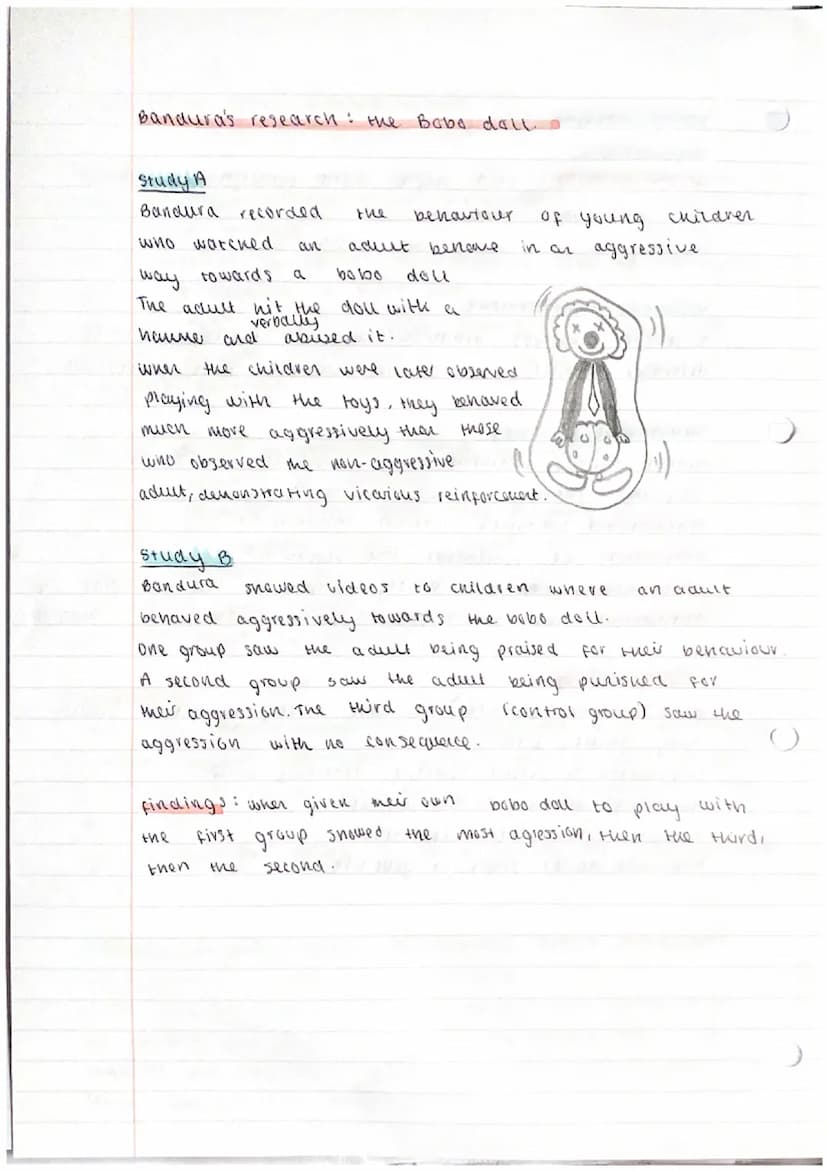 Bandura's research: the Bobo doll.
Study A
Bandura recorded the behaviour of young children
who watched an adult behave in an aggressive
way towards a bobo doll
The adult hit the doll with a
hamme and verbally abused it.
when the children were later observed
playing with the toys, they behaved
much more aggressively than those
who observed the non-aggressive
adult, demonstrating vicarious reinforcement.
Study B
Bandura showed videos to children where an adult
behaved aggressively towards the bobo doll.
One group saw the adult being praised for their behaviour.
A second group saw the adult being punished for
their aggression. The third group (control group) saw the
aggression with no consequence.
findings: when given their own bobo doll to play with
the first group showed the most agression, then the third,
then the second.